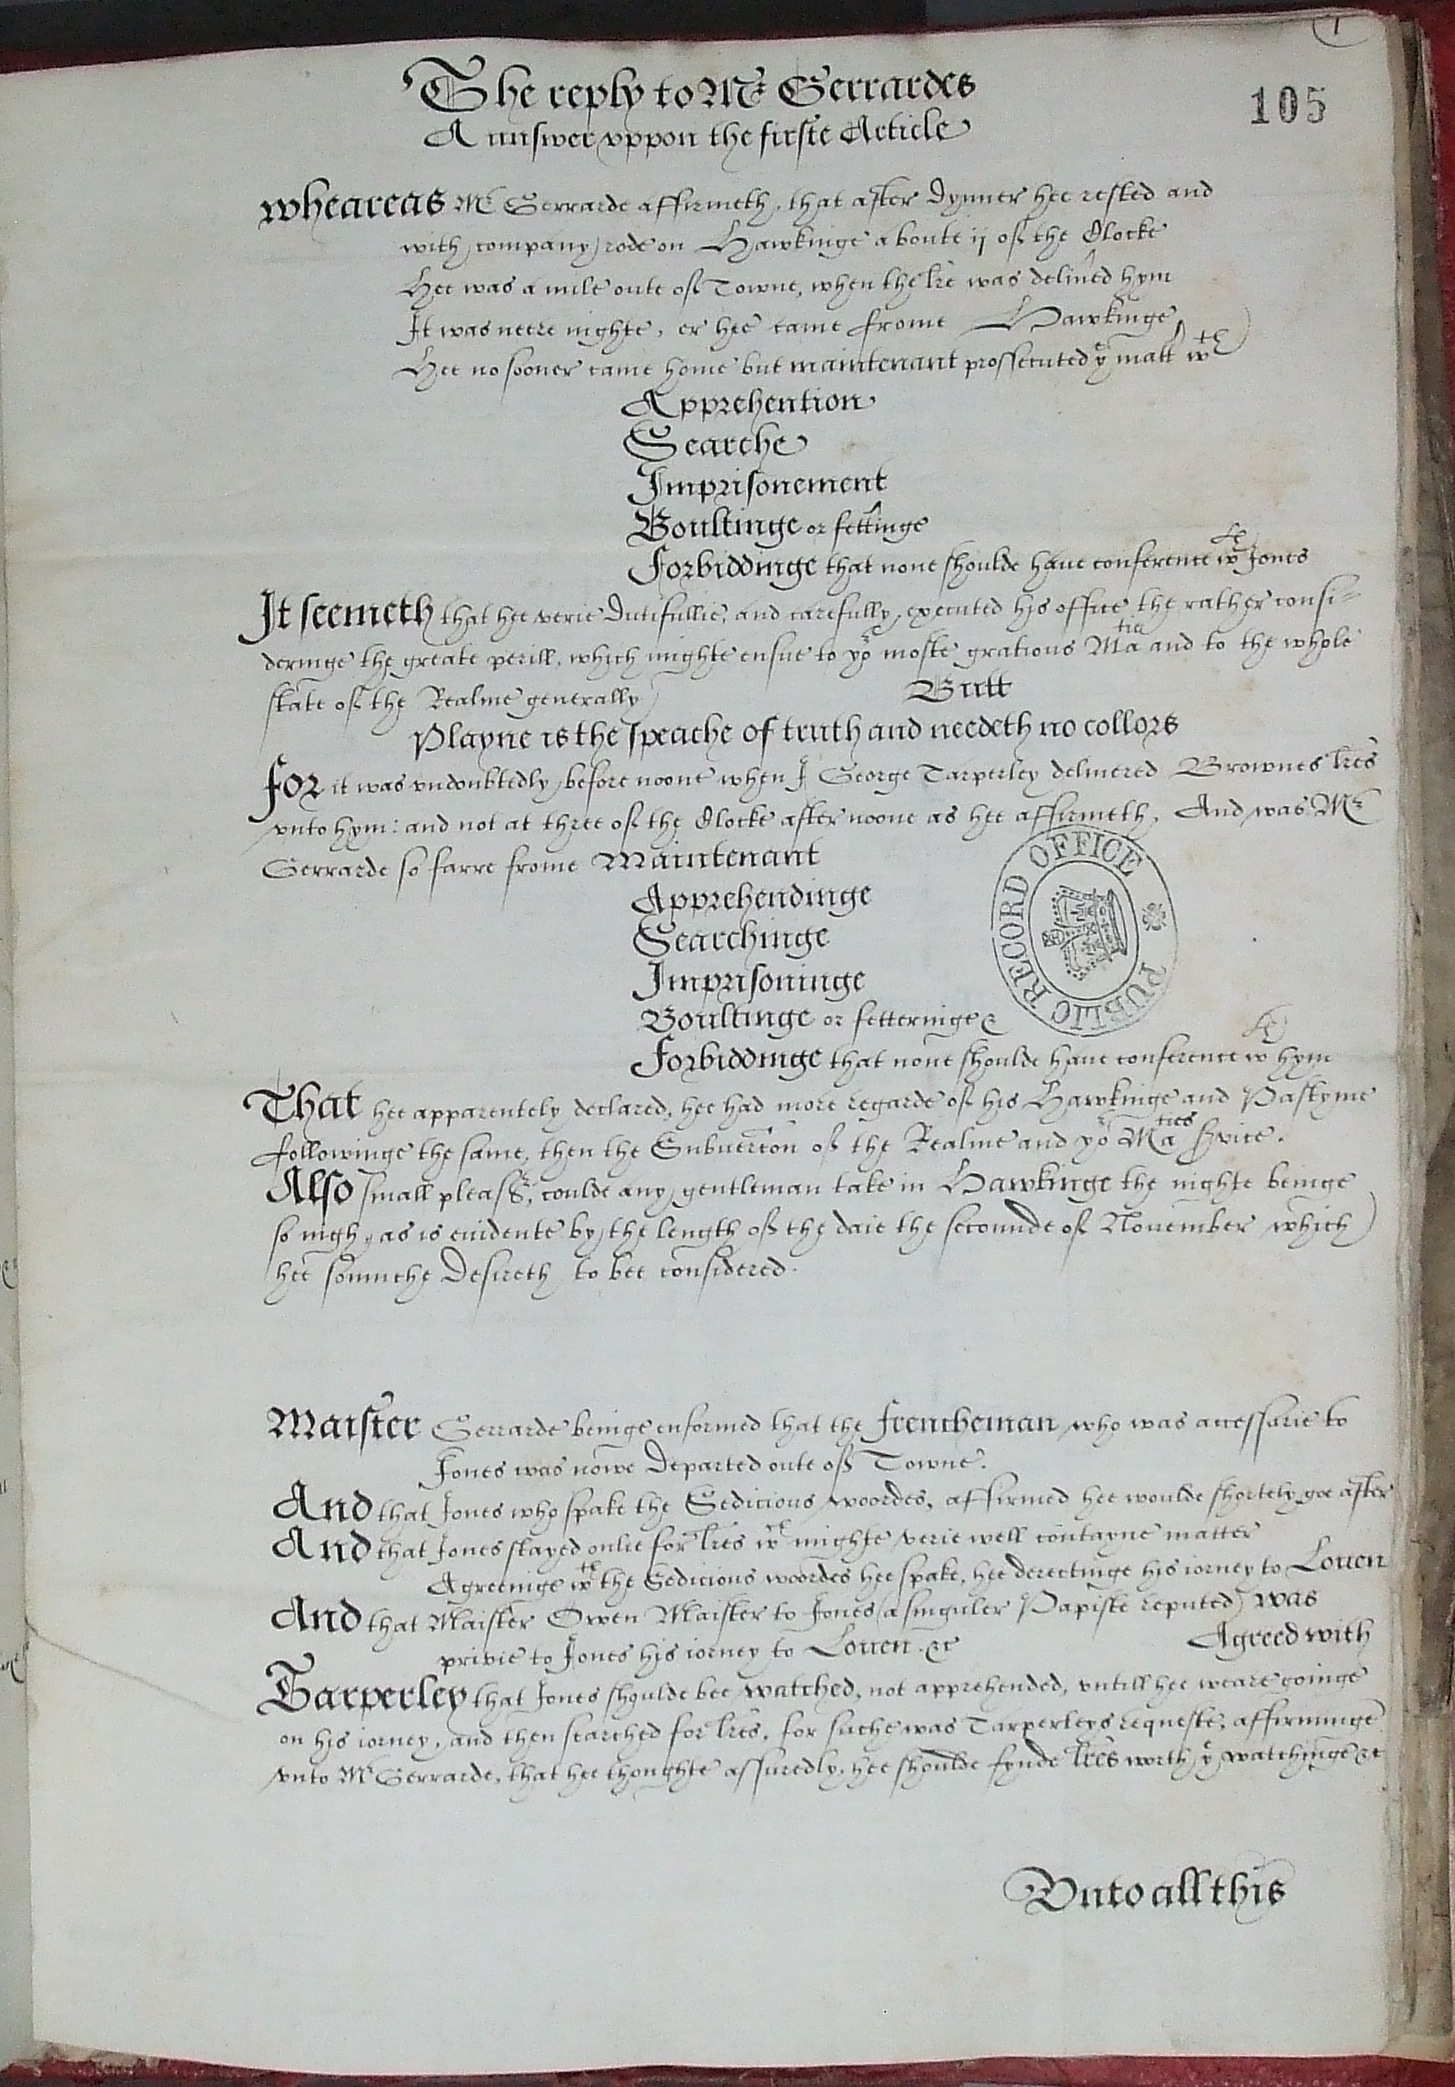 1
105
The reply to Mr Gerrardes
Aunswer vppon the firste Article
Wheareas Mr Gerrarde affirmeth, that after dynner hee rested and
with company rode on Hawkinge aboute ij of the Clocke
Hee was a mile oute of Towne, when the lre was deliued hym
It was neere nighte, er hee came frome Hawkinge
Hee no sooner came home but maintenant prossecuted ye matt wth
Apprehention
Searche
Imprisonement
Boultinge or fettinge
Forbiddinge that none shoulde haue conference wth Jones
It seemeth that hee verie dutifullie, and carefully, executed his office the rather consi=
deringe the greate perill, which mighte ensue to yor moste gratious Matie and to the whole
state of the Realme generally Butt
Playne is the speache of truth and needeth no collors
For it was vndoubtedly before noone when I George Tarperley deliuered Brownes lres
vnto hym: and not at three of the Clocke after noone as hee affirmeth, And was Mr
Gerrarde so farre frome Maintenant
Apprehendinge
Searchinge
Imprisoninge
Boultinge or fetteringe &
Forbiddinge that none shoulde haue conference wth hym
PUBLIC RECORD OFFICE
That hee apparentely declared, hee had more regarde of his Hawkinge and Pastyme
followinge the same, then the Subuercon of the Realme and yor Maties Svice.
Also small pleasr, coulde any gentleman take in Hawkinge the nighte beinge
so nigh, as is euidente by the length of the daie the secounde of November which
hee somuche desireth to bee considered.
Maister Gerrarde beinge enformed that the frencheman who was accessarie to
Jones was nowe departed oute off Towne.
And that Jones who spake the Sedicious woordes, affirmed hee woulde shortely goe after
And that Jones stayed onlie for lres wch mighte verie well contayne matter
Agreeinge wth the Sedicious woordes hee spake, hee derectinge his iorney to Louen
And that Maister Owen Maister to Jones (a singuler Papiste reputed) was
privie to Jones his iorney to Louen. &c Agreed with
Tarperley that Jones shoulde bee watched, not apprehended, vntill hee weare goinge
on his iorney, and then searched for lres, for suche was Tarperleys requeste, affirminge
vnto Mr Gerrarde, that hee thoughte assuredly, hee shoulde fynde lres worth ye watchinge &c
Vnto all this